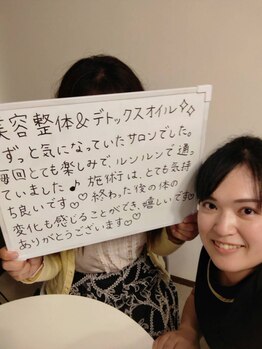 美容整体&デトックスオイル♡♡
ずっと気になっていたサロンでした。
毎回とても楽しみで、ルンルンで通っ
ていました♪ 施術は、とても気持
ち良いです♡♡終わった後の体の
変化も感じることができ、嬉しいです♡
ありがとうございます♡♡